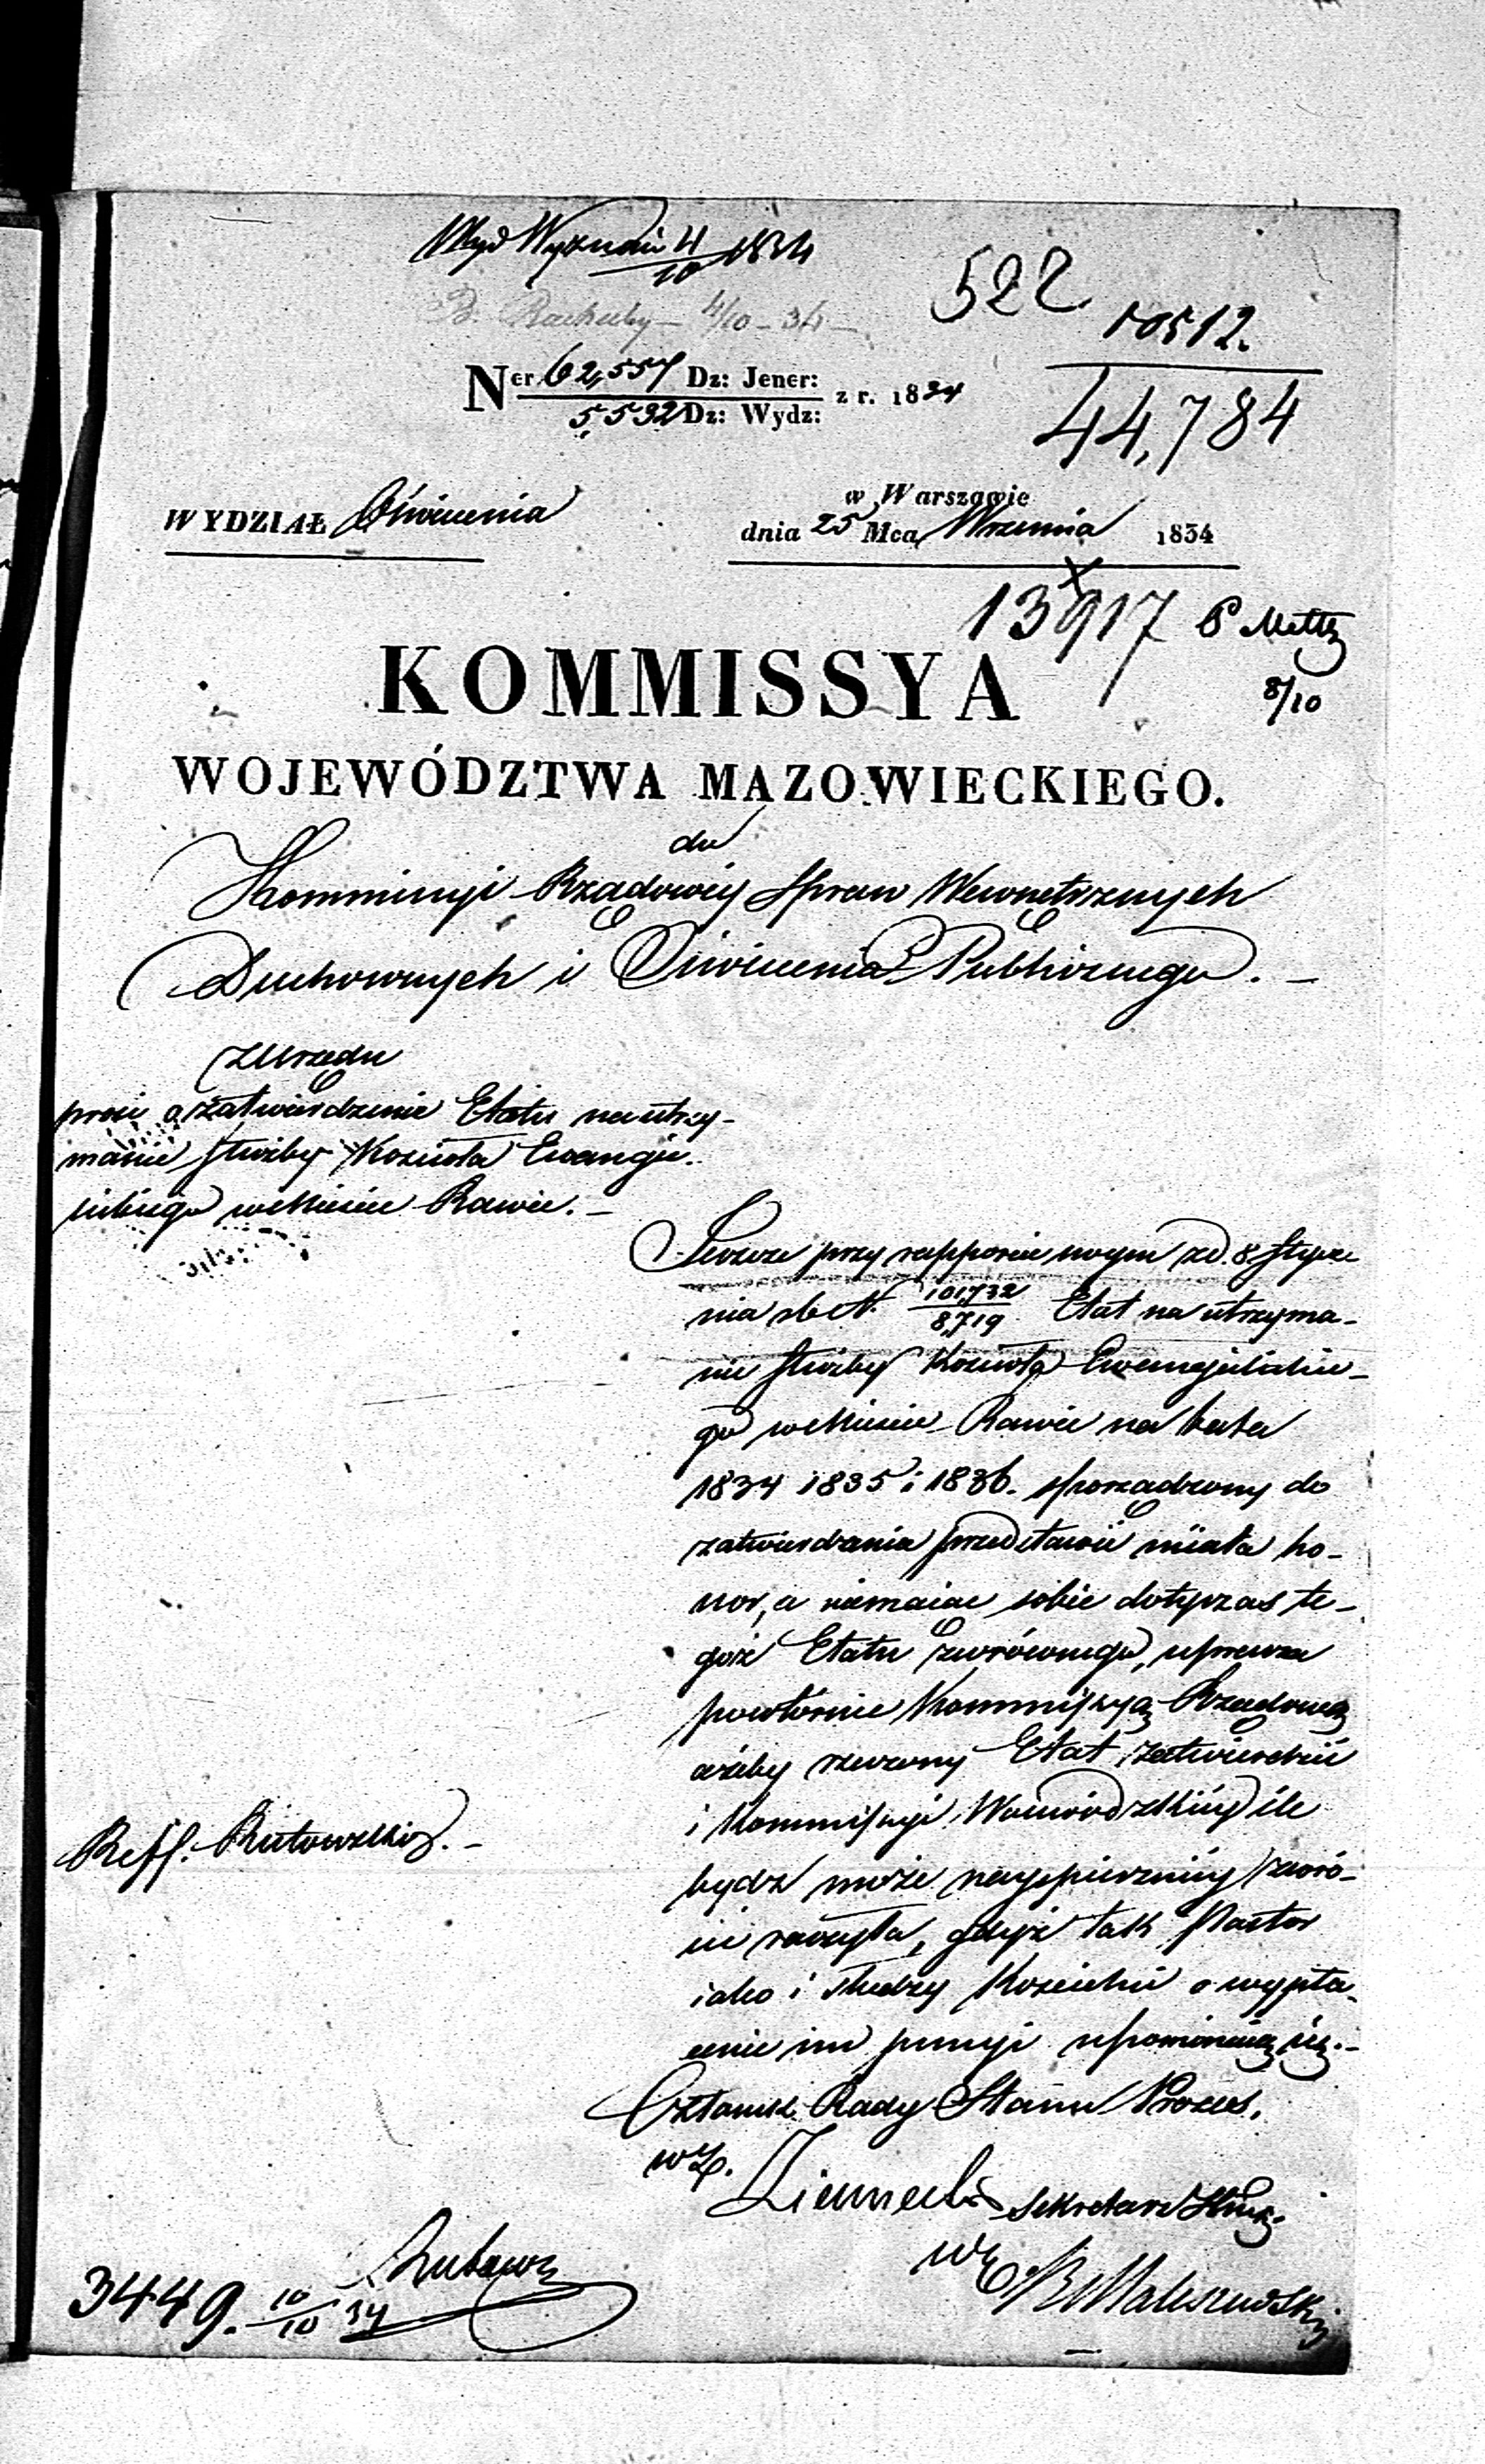 Wyd Wyznań 4/10 1834
B. Rachuby – 4/10 – 34 –
522
10512.
Ner 62,557 Dz: Jener: z r. 1834
5,532 Dz: Wydz:
44,784
WYDZIAŁ Oświecenia
w Warszawie
dnia 25 Mca Września 1834
13917
8/10
KOMMISSYA
WOJEWÓDZTWA MAZOWIECKIEGO.
do
Kommissyi Rządowéy Spraw Wewnętrznych
Duchownych i Oświecenia Publicznego. –
z Urzędu
prosi o zatwierdzenie Etatu na utrzy-
manie służby Kościoła Ewangie-
lickiego w Mieście Rawie. –
Jeszcze przy rapporcie swym z d. 8 Stycz
nia rb N. 101,732/8,719 Etat na utrzyma-
nie służby Kościoła Ewangielickie-
go w Mieście Rawie na lata
1834 1835 i 1836. sporządzony do
zatwierdzenia przedstawić miała ho-
nor, a niemaiąc sobie dotychczas te-
goż Etatu zwróconego, uprasza
powtórnie Kommissyą Rządową
ażeby rzeczony Etat zatwierdzić
i Kommissyi Woiewódzkiéy ile
bydź może nayspieszniéy zwró-
cić raczyła, gdyż tak Pastor
iako i słudzy Kościelni o wypła-
cenie im pensyi upominaią się. –
Reff. Rutowski. –
Członek Rady Stanu Prezes.
w Z.
Sekretarz Jlny
w Z
Maleszewski
3449. 10/10 34